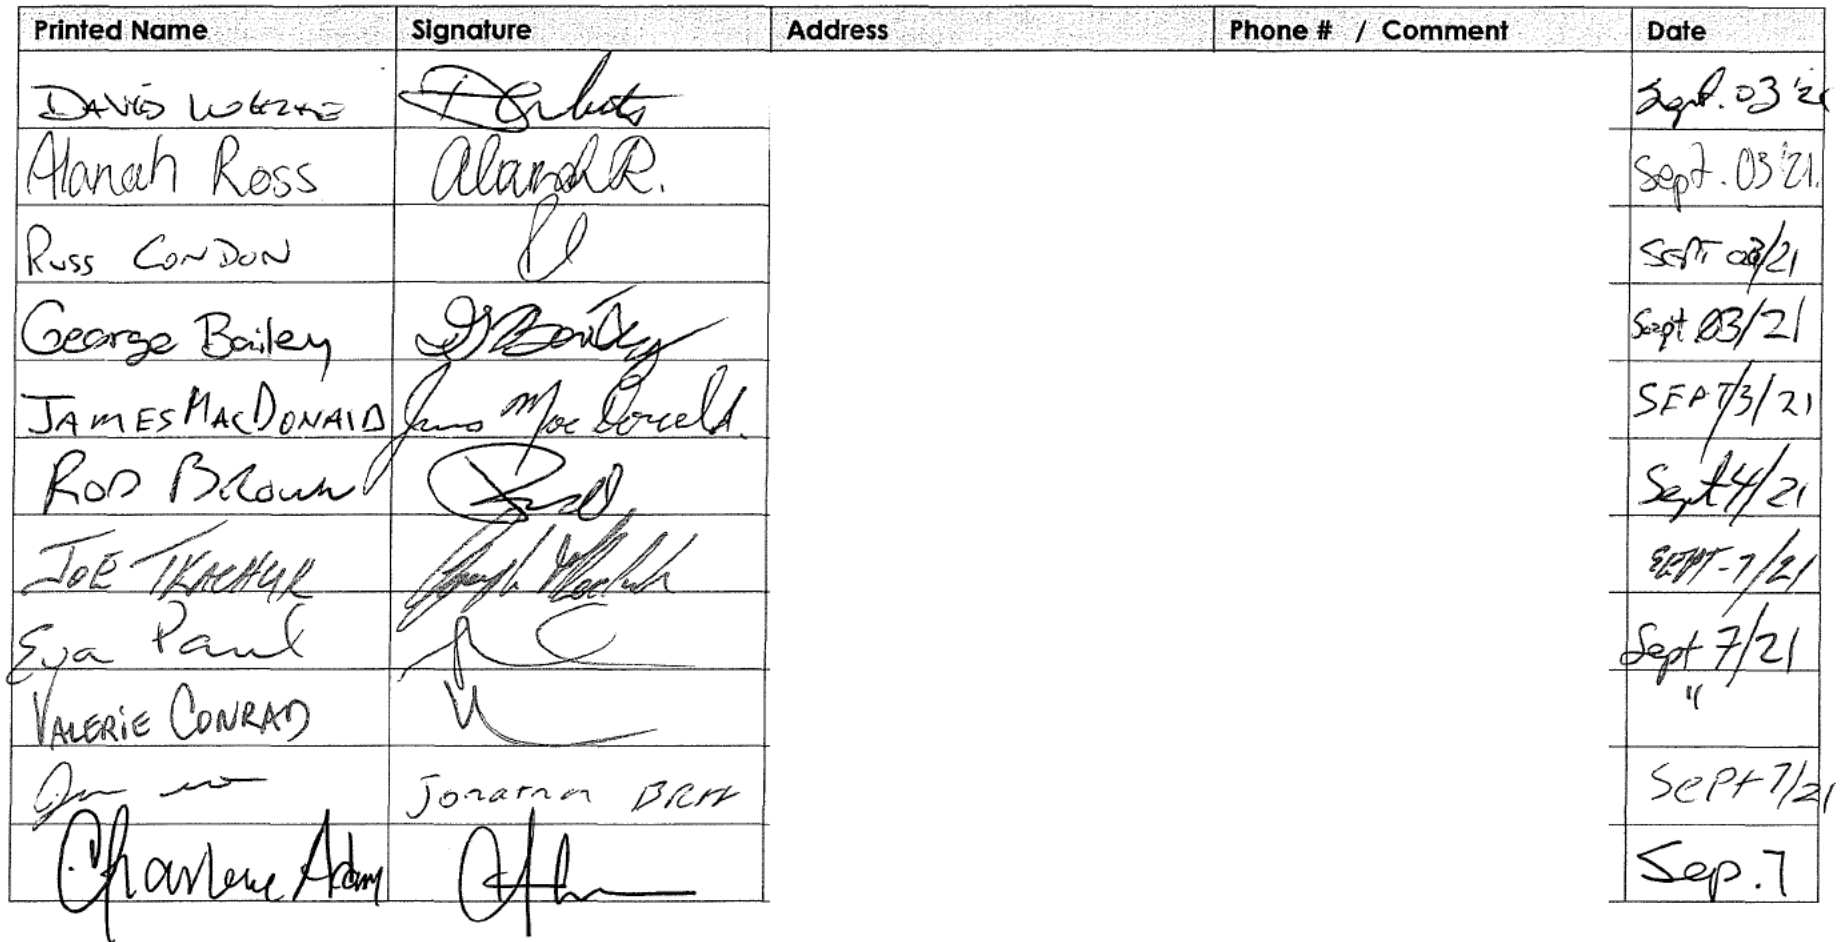 Printed Name Signature Address Phone # / Comment Date
DAVID Sept. 03 '21
Alanah Ross Alanah R. Sept. 03 '21.
RUSS CONDON SEPT 03/21
George Bailey G Bailey Sept 03/21
JAMES MACDONALD James MacDonald. SEPT/3/21
ROD BROWN Sept 4/21
JOE SEPT-7/21
Eva Paul Sept 7/21
VALERIE CONRAD "
Sept 7/21
Charlene Adam Sep. 7